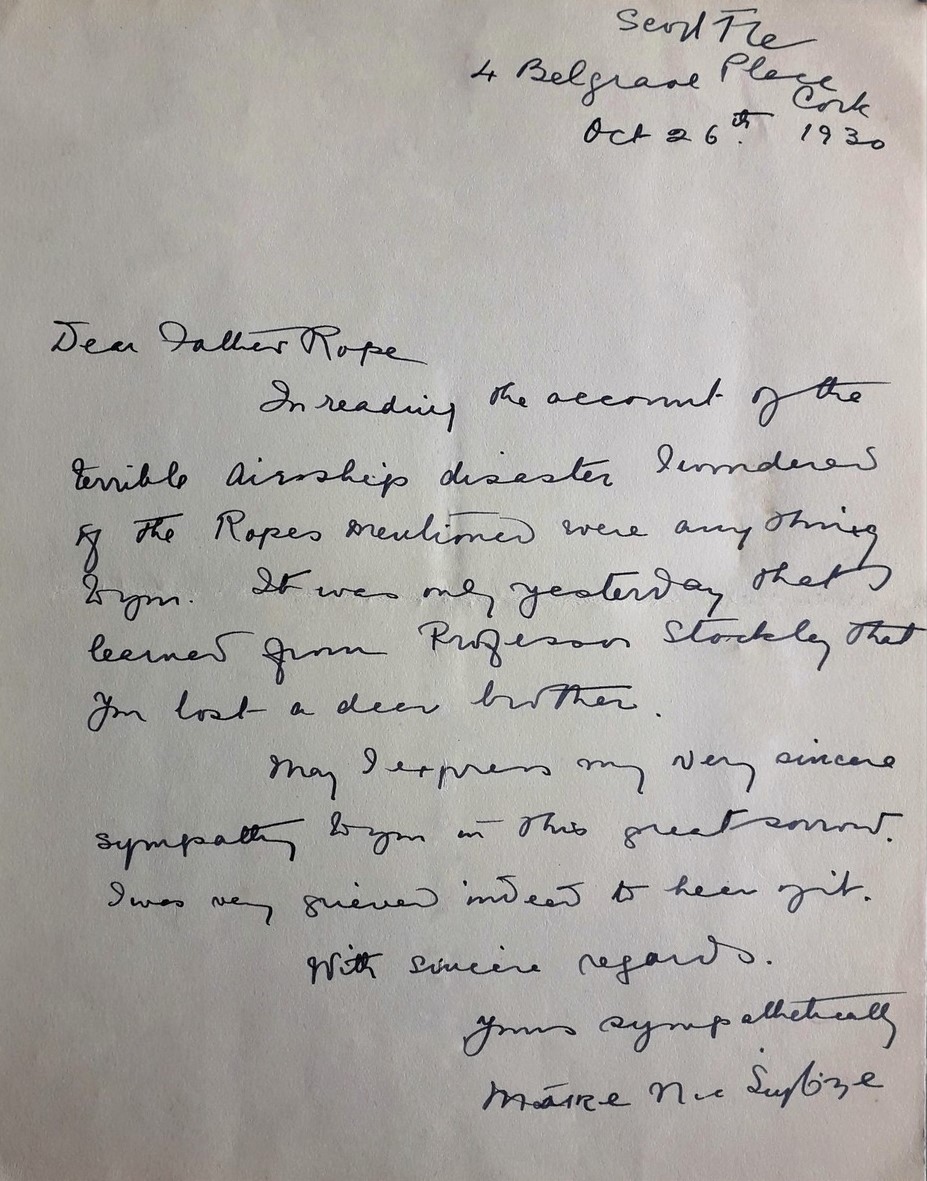 Scoil Íte
4 Belgrave Place
Cork
Oct 26th. 1930
Dear Father Rope
In reading the account of the
terrible airship disaster I wondered
if the Ropes mentioned were anything
to you. It was only yesterday that I
learned from Professor Stockley that
you lost a dear brother.
May I express my very sincere
sympathy to you in this great sorrow.
I was very grieved indeed to hear of it.
With sincere regards.
Yours sympathetically
Máire Nic Ṡuiḃne